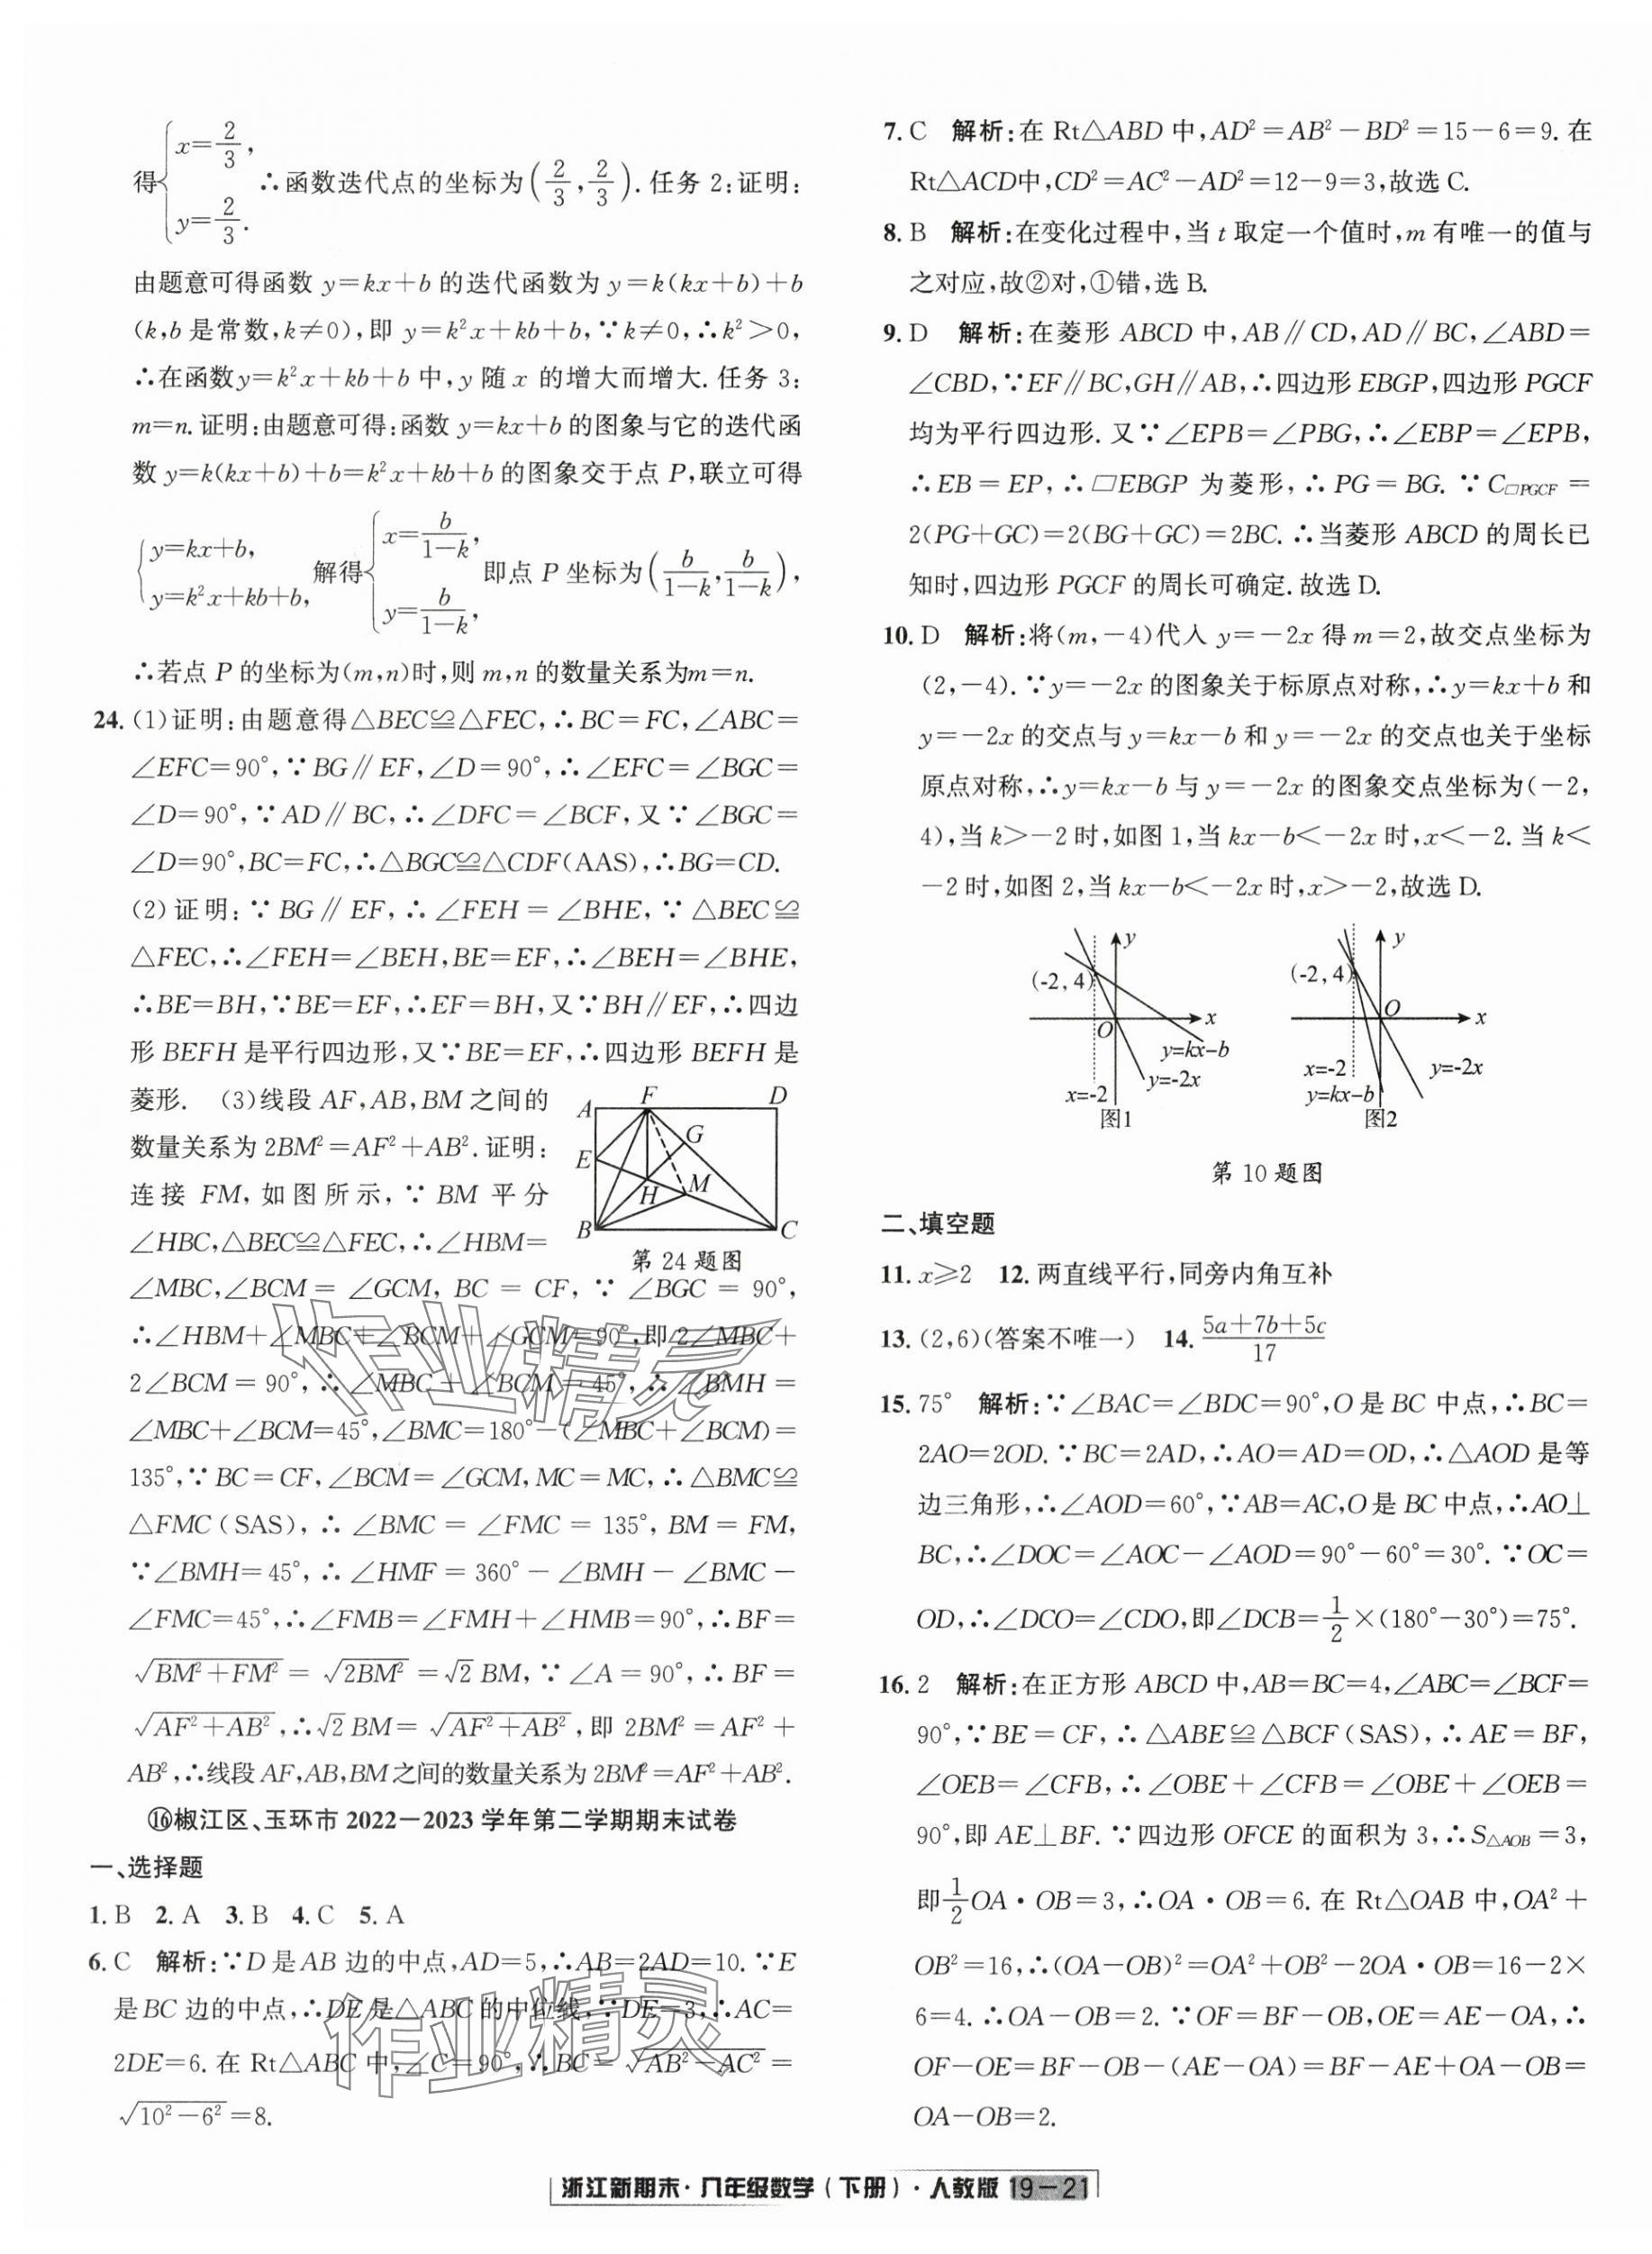 得{x=2/3, y=2/3. ∴函数迭代点的坐标为(2/3,2/3).任务2:证明:
由题意可得函数 y=kx+b 的迭代函数为 y=k(kx+b)+b
(k,b是常数,k≠0),即 y=k²x+kb+b,∵k≠0,∴k²>0,
∴在函数y=k²x+kb+b中,y随x的增大而增大.任务3:
m=n.证明:由题意可得:函数 y=kx+b 的图象与它的迭代函
数 y=k(kx+b)+b=k²x+kb+b 的图象交于点 P,联立可得
{y=kx+b, y=k²x+kb+b, 解得{x=b/(1-k), y=b/(1-k), 即点 P 坐标为(b/(1-k),b/(1-k)),
∴若点 P 的坐标为(m,n)时,则 m,n 的数量关系为m=n.
24.(1)证明:由题意得△BEC≌△FEC,∴BC=FC,∠ABC=
∠EFC=90°,∵BG∥EF,∠D=90°,∴∠EFC=∠BGC=
∠D=90°,∵AD∥BC,∴∠DFC=∠BCF,又∵∠BGC=
∠D=90°,BC=FC,∴△BGC≌△CDF(AAS),∴BG=CD.
(2)证明:∵BG∥EF,∴∠FEH=∠BHE,∵△BEC≌
△FEC,∴∠FEH=∠BEH,BE=EF,∴∠BEH=∠BHE,
∴BE=BH,∵BE=EF,∴EF=BH,又∵BH∥EF,∴四边
形 BEFH 是平行四边形,又∵BE=EF,∴四边形 BEFH 是
菱形. (3)线段 AF,AB,BM 之间的
数量关系为 2BM²=AF²+AB².证明:
连接 FM,如图所示,∵BM 平分
∠HBC,△BEC≌△FEC,∴∠HBM=
A F D
G
E
H M
B C
第 24 题图
∠MBC,∠BCM=∠GCM,BC=CF,∵∠BGC=90°,
∴∠HBM+∠MBC+∠BCM+∠GCM=90°,即 2∠MBC+
2∠BCM=90°,∴∠MBC+∠BCM=45°,∴∠BMH=
∠MBC+∠BCM=45°,∠BMC=180°-(∠MBC+∠BCM)=
135°,∵BC=CF,∠BCM=∠GCM,MC=MC,∴△BMC≌
△FMC(SAS),∴∠BMC=∠FMC=135°,BM=FM,
∵∠BMH=45°,∴∠HMF=360°-∠BMH-∠BMC-
∠FMC=45°,∴∠FMB=∠FMH+∠HMB=90°,∴BF=
√(BM²+FM²)=√(2BM²)=√2BM,∵∠A=90°,∴BF=
√(AF²+AB²),∴√2BM=√(AF²+AB²),即 2BM²=AF²+
AB²,∴线段AF,AB,BM之间的数量关系为2BM²=AF²+AB².
⑯椒江区、玉环市2022—2023学年第二学期期末试卷
一、选择题
1.B 2.A 3.B 4.C 5.A
6.C 解析:∵D是AB边的中点,AD=5,∴AB=2AD=10.∵E
是BC边的中点,∴DE是△ABC的中位线,∵DE=3,∴AC=
2DE=6.在 Rt△ABC 中,∠C=90°,∴BC=√(AB²-AC²)=
√(10²-6²)=8.
7.C 解析:在 Rt△ABD 中,AD²=AB²-BD²=15-6=9.在
Rt△ACD中,CD²=AC²-AD²=12-9=3,故选C.
8.B 解析:在变化过程中,当 t 取定一个值时,m 有唯一的值与
之对应,故②对,①错,选B.
9.D 解析:在菱形 ABCD 中,AB∥CD,AD∥BC,∠ABD=
∠CBD,∵EF∥BC,GH∥AB,∴四边形EBGP,四边形PGCF
均为平行四边形.又∵∠EPB=∠PBG,∴∠EBP=∠EPB,
∴EB=EP,∴▱EBGP 为菱形,∴PG=BG.∵C▱PGCF=
2(PG+GC)=2(BG+GC)=2BC.∴当菱形 ABCD 的周长已
知时,四边形 PGCF 的周长可确定.故选D.
10.D 解析:将(m,-4)代入 y=-2x 得 m=2,故交点坐标为
(2,-4).∵y=-2x的图象关于标原点对称,∴y=kx+b和
y=-2x的交点与y=kx-b和y=-2x的交点也关于坐标
原点对称,∴y=kx-b与y=-2x的图象交点坐标为(-2,
4),当k>-2时,如图1,当kx-b<-2x时,x<-2.当k<
-2时,如图2,当kx-b<-2x时,x>-2,故选D.
y
(-2,4)
O x
y=kx-b
y=-2x
x=-2
图1
y
(-2,4)
O x
x=-2
y=-2x
y=kx-b
图2
第 10 题图
二、填空题
11.x≥2 12.两直线平行,同旁内角互补
13.(2,6)(答案不唯一) 14.(5a+7b+5c)/17
15.75° 解析:∵∠BAC=∠BDC=90°,O是BC中点,∴BC=
2AO=2OD.∵BC=2AD,∴AO=AD=OD,∴△AOD是等
边三角形,∴∠AOD=60°,∵AB=AC,O是BC中点,∴AO⊥
BC,∴∠DOC=∠AOC-∠AOD=90°-60°=30°.∵OC=
OD,∴∠DCO=∠CDO,即∠DCB=1/2×(180°-30°)=75°.
16.2 解析:在正方形 ABCD 中,AB=BC=4,∠ABC=∠BCF=
90°,∵BE=CF,∴△ABE≌△BCF(SAS),∴AE=BF,
∠OEB=∠CFB,∴∠OBE+∠CFB=∠OBE+∠OEB=
90°,即 AE⊥BF.∵四边形 OFCE 的面积为 3,∴S△AOB=3,
即1/2OA·OB=3,∴OA·OB=6.在 Rt△OAB 中,OA²+
OB²=16,∴(OA-OB)²=OA²+OB²-2OA·OB=16-2×
6=4.∴OA-OB=2.∵OF=BF-OB,OE=AE-OA,∴
OF-OE=BF-OB-(AE-OA)=BF-AE+OA-OB=
OA-OB=2.
作业精灵
作业精灵
浙江新期末·八年级数学(下册)·人教版 19-21